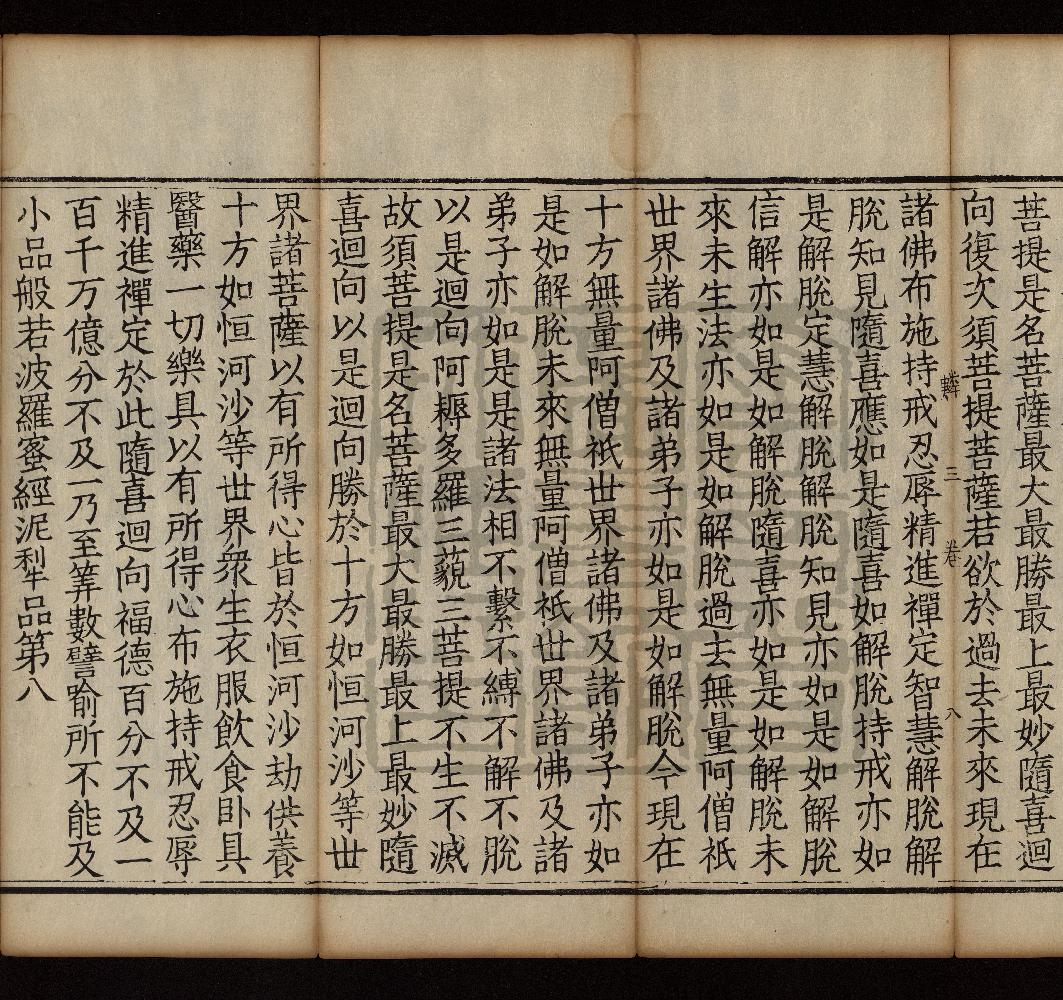 菩提是名菩薩最大最勝最上最妙隨喜迴
向復次須菩提菩薩若欲於過去未來現在
三 卷 八
諸佛布施持戒忍辱精進禪定智慧解脫解
脫知見隨喜應如是隨喜如解脫持戒亦如
是解脫定慧解脫解脫知見亦如是如解脫
信解亦如是如解脫隨喜亦如是如解脫未
來未生法亦如是如解脫過去無量阿僧祇
世界諸佛及諸弟子亦如是如解脫今現在
十方無量阿僧祇世界諸佛及諸弟子亦如
是如解脫未來無量阿僧祇世界諸佛及諸
弟子亦如是是諸法相不繫不縛不解不脫
以是迴向阿耨多羅三藐三菩提不生不滅
故須菩提是名菩薩最大最勝最上最妙隨
喜迴向以是迴向勝於十方如恒河沙等世
界諸菩薩以有所得心皆於恒河沙劫供養
十方如恒河沙等世界衆生衣服飲食卧具
醫藥一切樂具以有所得心布施持戒忍辱
精進禪定於此隨喜迴向福德百分不及一
百千万億分不及一乃至筭數譬喻所不能及
小品般若波羅蜜經泥犁品第八